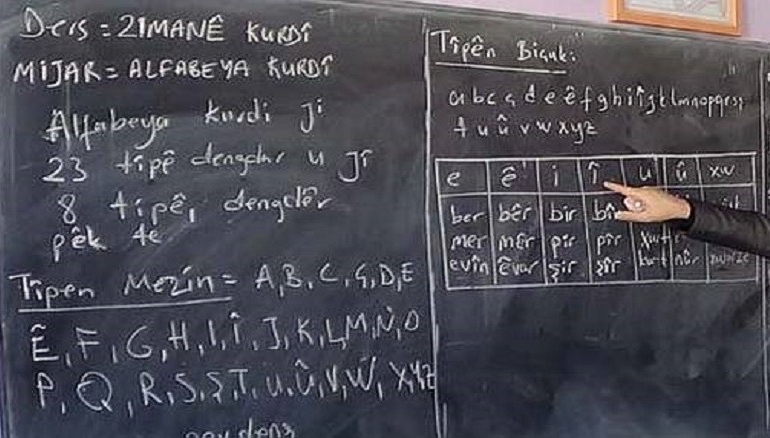 Ders = ZIMANÊ KURDÎ
MIJAR = ALFABEYA KURDÎ
Alfabeya kurdi ji
23 tîpê dengdar u Jî
8 tipê, dengdêr
pêk te
Tîpen Mezin = A, B, C, Ç, D, E
Ê, F, G, H, I, Î, J, K, L, M, N, O
P, Q, R, S, Ş, T, U, Û, V, W, X, Y, Z
Tîpên Biçuk:
a b c ç d e ê f g h i î j k l m n o p q r s ş
t u û v w x y z
e ê i î u û xw
ber bêr bir bîr
mer mêr pir pîr
evîn êvar şir şîr kurt nûr